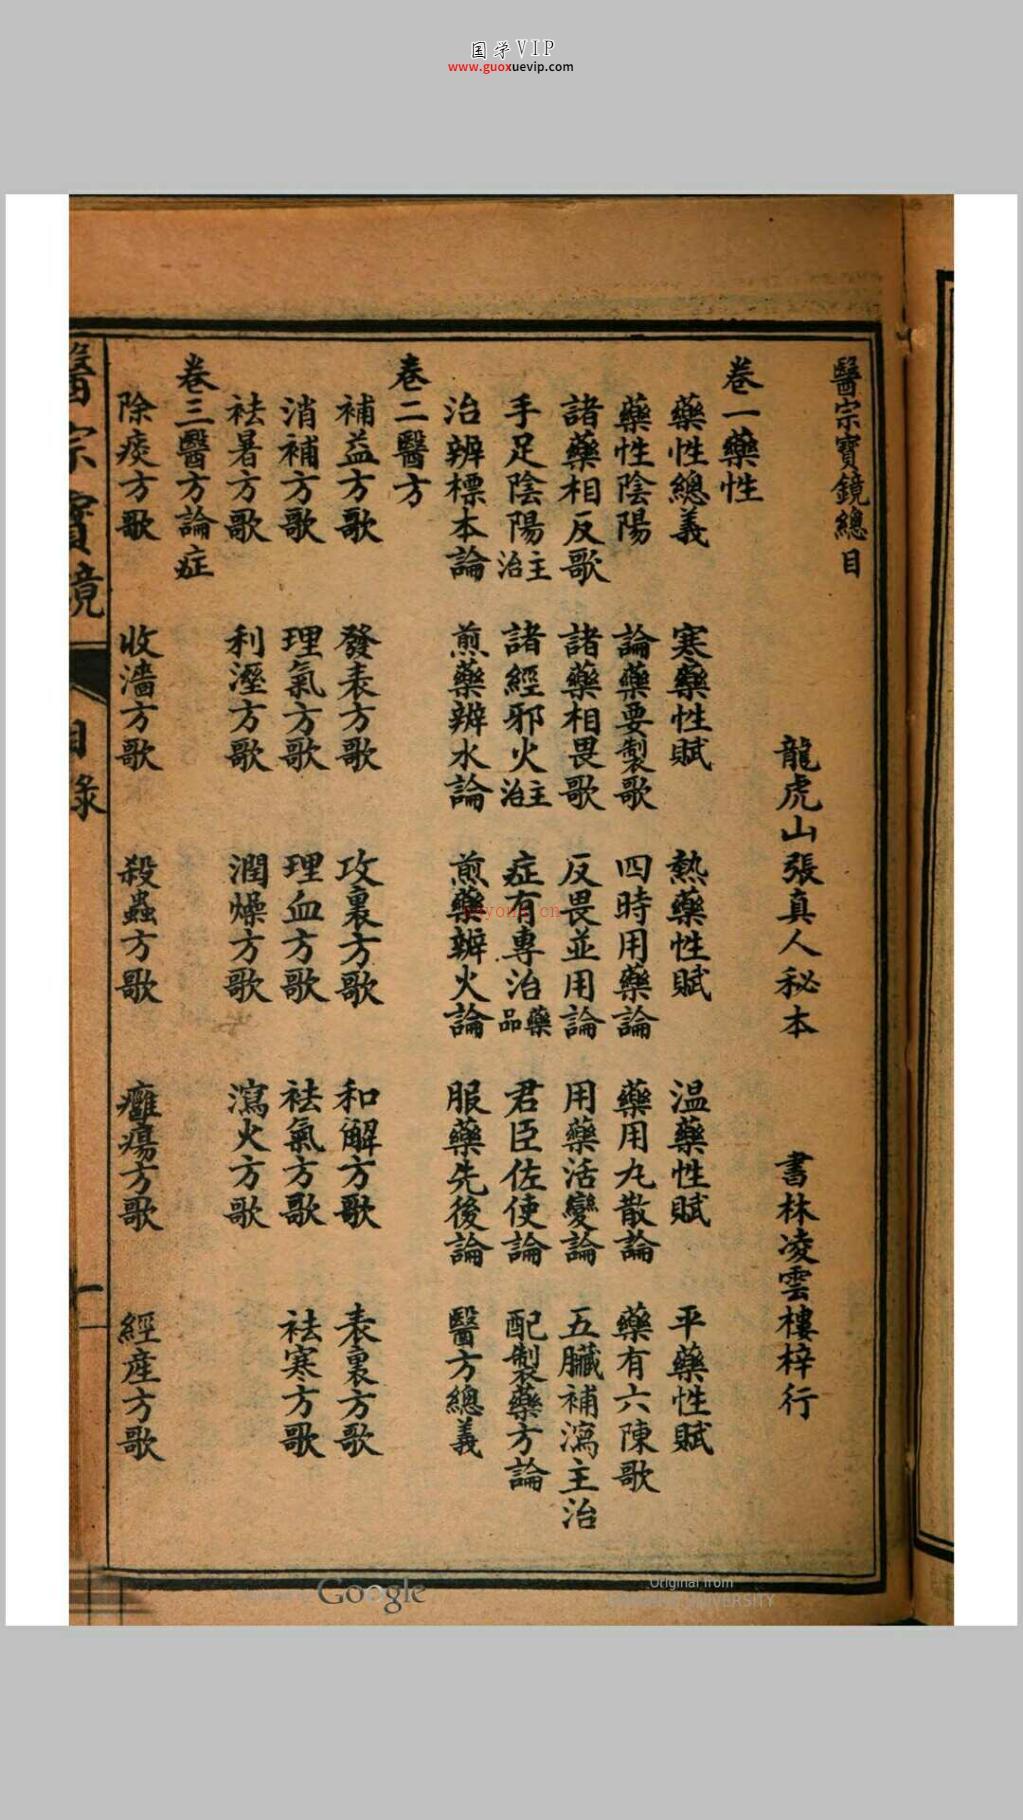 国学VIP
www.guoxuevip.com
醫宗寶鏡總目
龍虎山張真人秘本 書林凌雲樓梓行
卷一藥性
藥性總義 寒藥性賦 熱藥性賦 温藥性賦 平藥性賦
藥性陰陽 論藥要製歌 四時用藥論 藥用丸散論 藥有六陳歌
諸藥相反歌 諸藥相畏歌 反畏並用論 用藥活變論 五臟補瀉主治
手足陰陽主治 諸經邪火主治 症有專治藥品 君臣佐使論 配製藥方論
治辨標本論 煎藥辨水論 煎藥辨火論 服藥先後論 醫方總義
卷二醫方
補益方歌 發表方歌 攻裏方歌 和解方歌 表裏方歌
消補方歌 理氣方歌 理血方歌 袪氣方歌 袪寒方歌
袪暑方歌 利溼方歌 潤燥方歌 瀉火方歌
卷三醫方論症
除痰方歌 收濇方歌 殺蟲方歌 癰瘍方歌 經產方歌
醫宗寶鏡 目錄 一
Google
Original from
UNIVERSITY